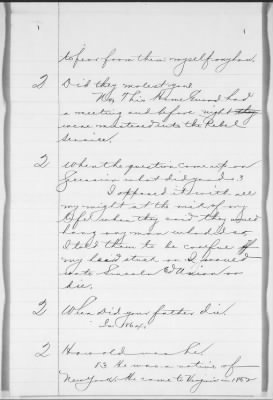 to fear from them myself anyhow.
2 Did they molest you
No, This Home Guard had
a meeting and before night they
were mustered into the Rebel
service.
2 When the question came up on
Secession what did you do?
I opposed it with all
my might at the risk of my
life when they said they would
hang any man who did so
I told them to be careful if
my head stuck on I would
vote Lincoln & Union or
die.
2 When did your father die.
In 1862,
2 How old was he.
83 He was a native of
New York. He came to Virginia in 1852